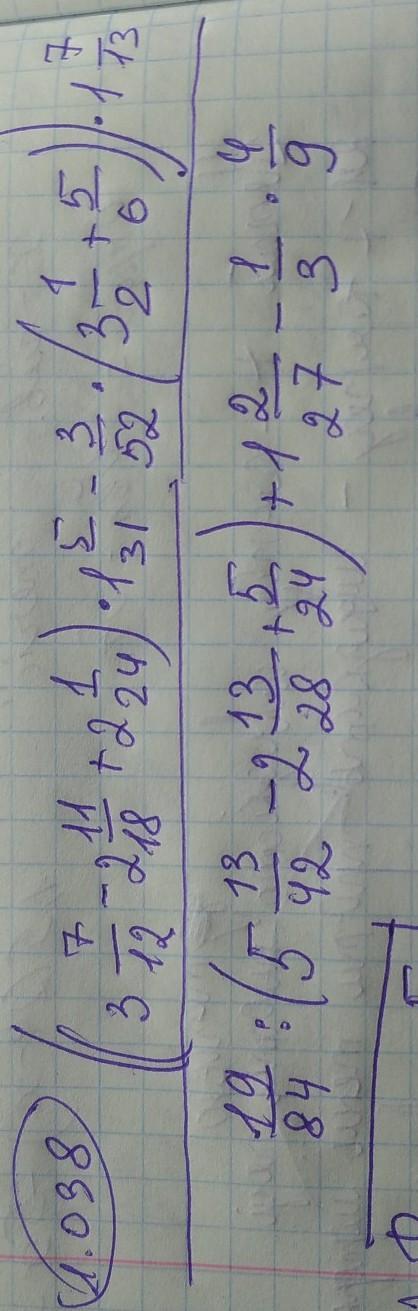 1.038 ((3 7/12 - 2 11/18 + 2 1/24) · 1 5/31 - 3/52 · (3 1/2 + 5/6)) · 1 7/13
19/84 : (5 13/42 - 2 13/28 + 5/24) + 1 2/27 - 1/3 · 4/9